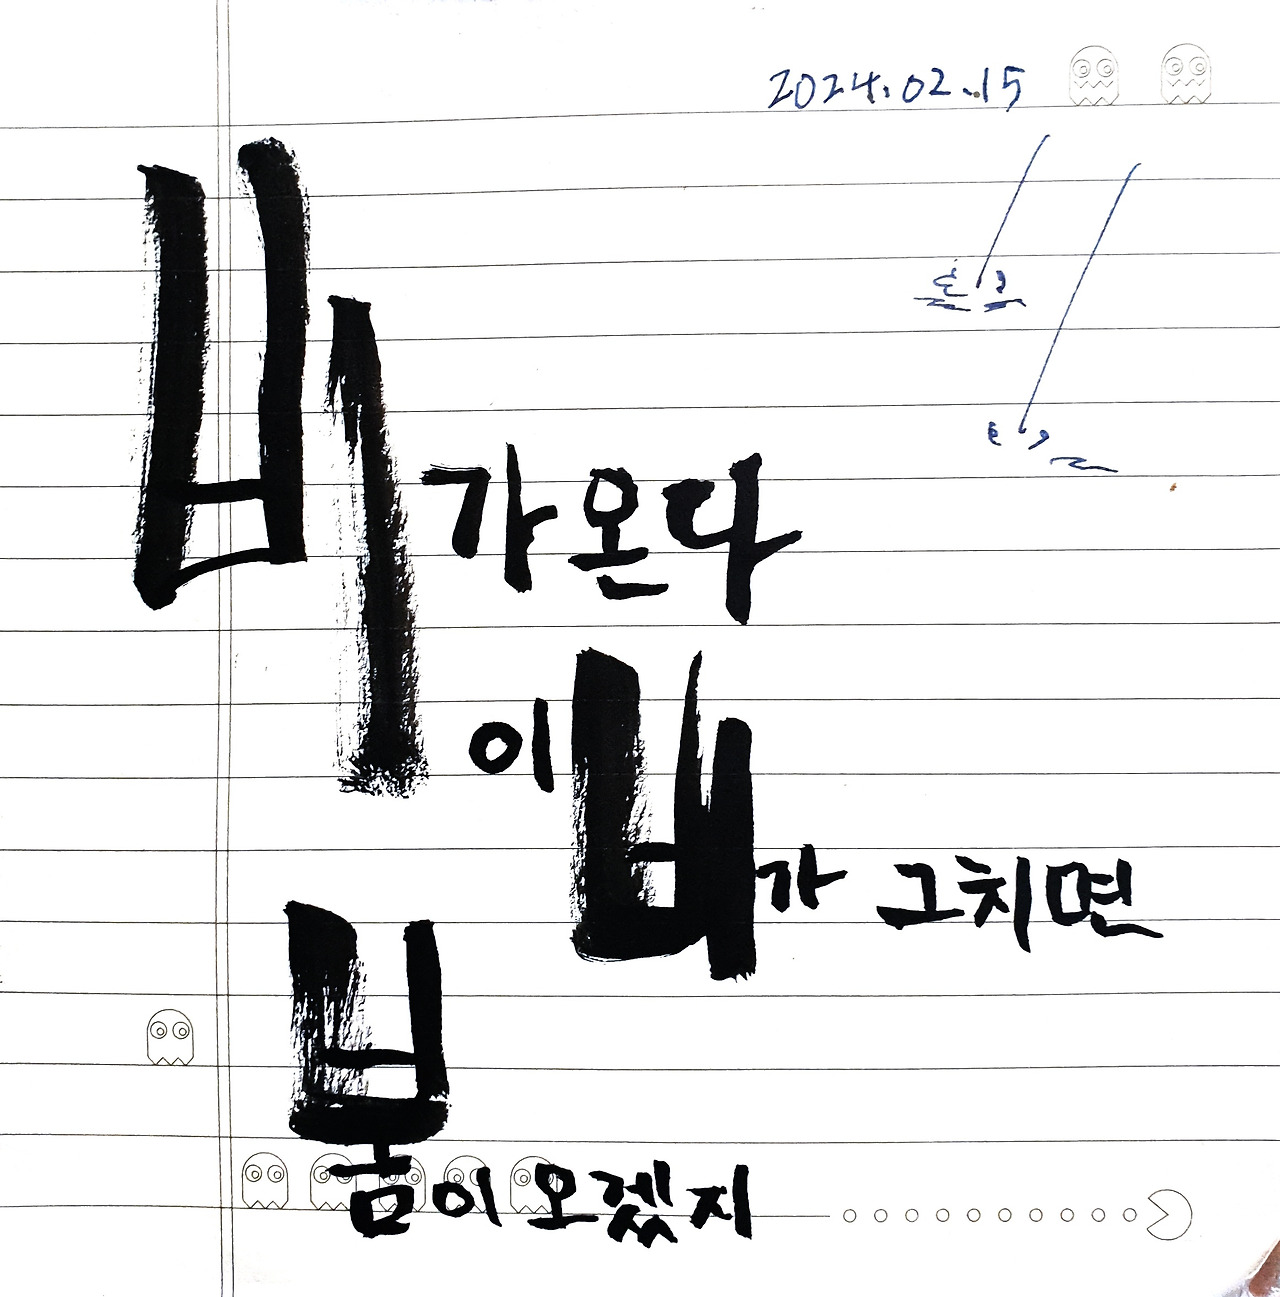 2024.02.15
비가온다
이 비가 그치면
봄이오겠지